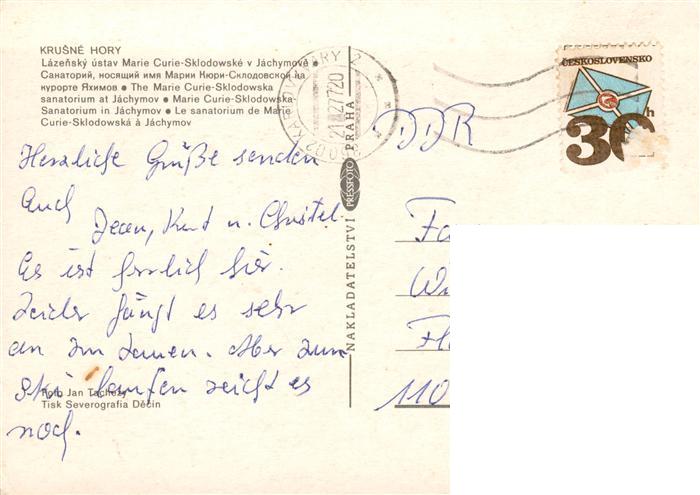 KRUŠNÉ HORY
Lázeňský ústav Marie Curie-Sklodowské v Jáchymově ●
Санаторий, носящий имя Марии Кюри-Склодовской на
курорте Яхимов ● The Marie Curie-Sklodowska
sanatorium at Jáchymov ● Marie Curie-Sklodowska-
Sanatorium in Jáchymov ● Le sanatorium de Marie
Curie-Sklodowská à Jáchymov
Herzliche Grüße senden
Euch
Jean, Kurt u. Christel.
Es ist herrlich hier.
Leider fängt es sehr
an zu tauen. Aber zum
Ski laufen reicht es
noch.
Foto Jan Tachezy
Tisk Severografia Děčín
NAKLADATELSTVÍ PRESSFOTO PRAHA
KARLOVY VARY 2
ČESKOSLOVENSKO
30 h
DDR
110